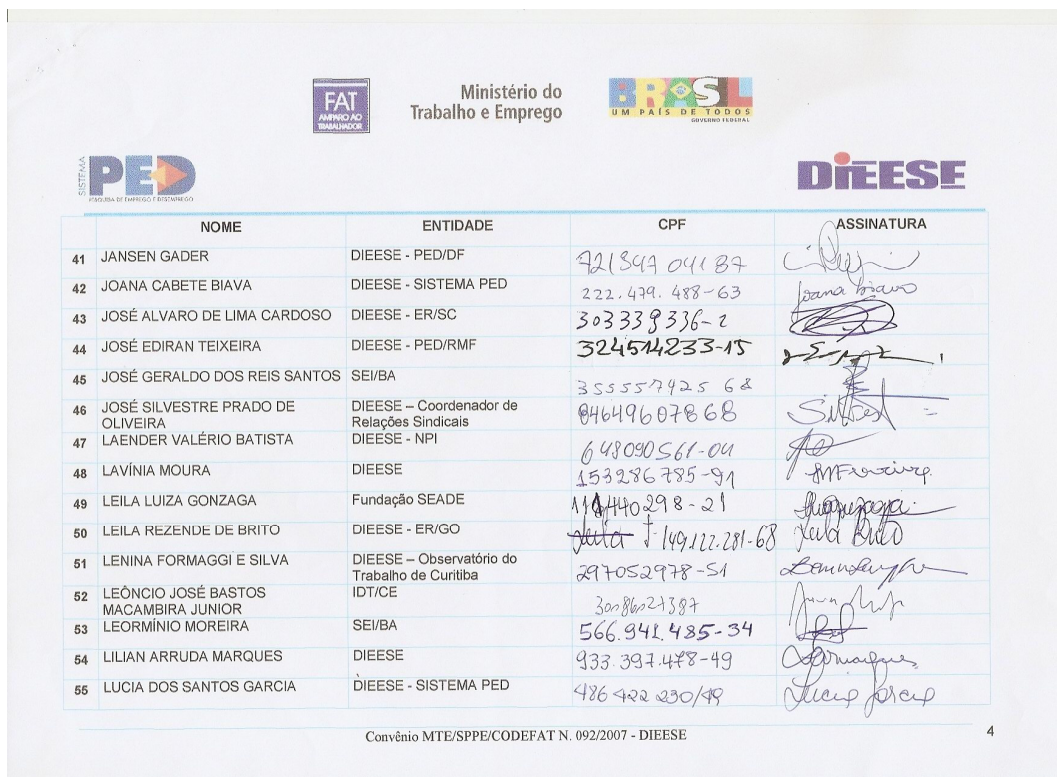 FAT
AMPARO AO
TRABALHADOR
Ministério do
Trabalho e Emprego
BRASIL
UM PAÍS DE TODOS
GOVERNO FEDERAL
SISTEMA
PED
PESQUISA DE EMPREGO E DESEMPREGO
DIEESE
NOME ENTIDADE CPF ASSINATURA
41 JANSEN GADER DIEESE - PED/DF 721347 041 87
42 JOANA CABETE BIAVA DIEESE - SISTEMA PED 222.479.488-63 Joana Biava
43 JOSÉ ALVARO DE LIMA CARDOSO DIEESE - ER/SC 303339336-2
44 JOSÉ EDIRAN TEIXEIRA DIEESE - PED/RMF 324514233-15
45 JOSÉ GERALDO DOS REIS SANTOS SEI/BA 355557425 68
46 JOSÉ SILVESTRE PRADO DE
OLIVEIRA DIEESE – Coordenador de
Relações Sindicais 04649607868
47 LAENDER VALÉRIO BATISTA DIEESE - NPI 648090561-04
48 LAVÍNIA MOURA DIEESE 153286785-91
49 LEILA LUIZA GONZAGA Fundação SEADE
50 LEILA REZENDE DE BRITO DIEESE - ER/GO 149.122.281-68 Leila Brito
51 LENINA FORMAGGI E SILVA DIEESE – Observatório do
Trabalho de Curitiba 297052978-51
52 LEÔNCIO JOSÉ BASTOS
MACAMBIRA JUNIOR IDT/CE
53 LEORMÍNIO MOREIRA SEI/BA 566.941.485-34
54 LILIAN ARRUDA MARQUES DIEESE 933.397.478-49
55 LUCIA DOS SANTOS GARCIA DIEESE - SISTEMA PED 486 422 230/49 Lucia Garcia
Convênio MTE/SPPE/CODEFAT N. 092/2007 - DIEESE
4